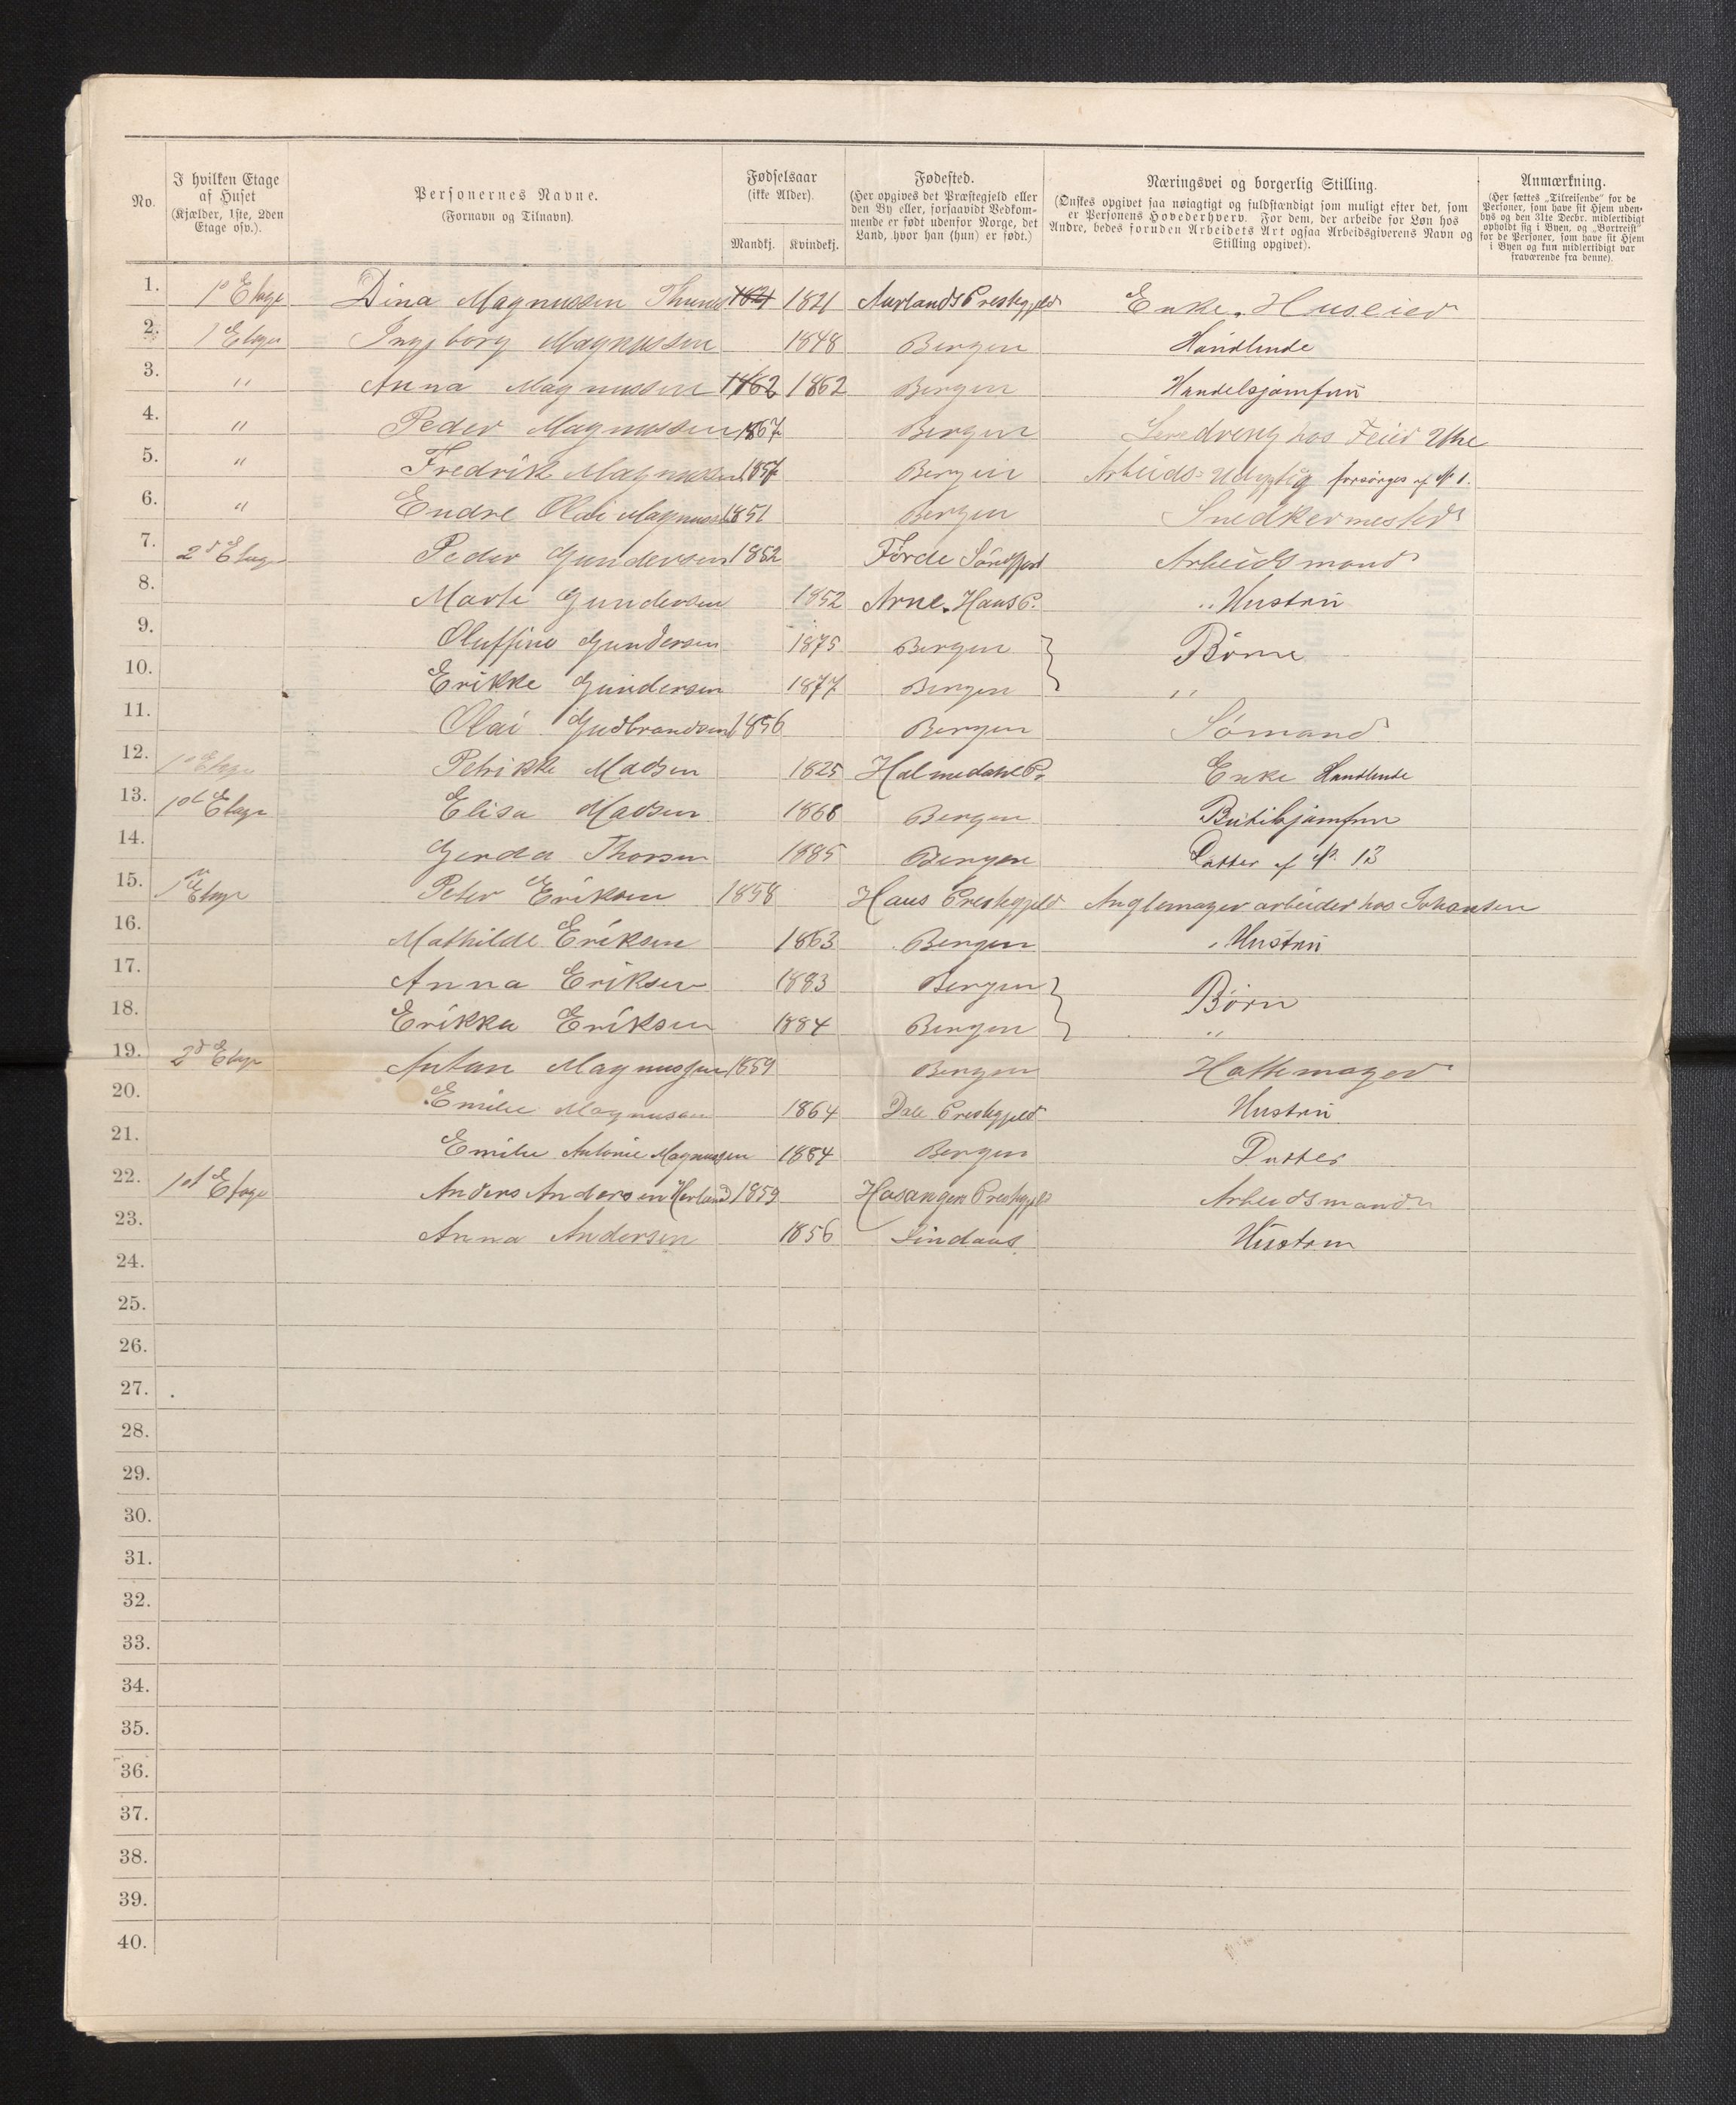 No.
I hvilken Etage
af Huset
(Kjælder, 1ste, 2den
Etage osv.).
Personernes Navne.
(Fornavn og Tilnavn).
Fødselsaar
(ikke Alder).
Mandkj. Kvindekj.
Fødested.
(Her opgives det Præstegjeld eller
den By eller, forsaavidt Vedkom-
mende er født udenfor Norge, det
Land, hvor han (hun) er født.)
Næringsvei og borgerlig Stilling.
(Ønskes opgivet saa nøiagtigt og fuldstændigt som muligt efter det, som
er Personens Hovederhverv. For dem, der arbeide for Løn hos
Andre, bedes foruden Arbeidets Art ogsaa Arbeidsgiverens Navn og
Stilling opgivet).
Anmærkning.
(Her sættes „Tilreisende“ for de
Personer, som have sit Hjem uden-
bys og den 31te Decbr. midlertidigt
opholdt sig i Byen, og „Bortreist“
for de Personer, som have sit Hjem
i Byen og kun midlertidigt var
fraværende fra denne).
1. 1e Etage Dina Magnussen 1821 1821 Aurlands Prestegjeld Enke. Huseier
2. 1 Etage Ingeborg Magnussen 1848 Bergen Handlende
3. " Anna Magnussen 1862 1862 Bergen Handelsjomfru
4. " Peder Magnussen 1867 Bergen Læredreng hos Feier Uhe
5. " Fredrik Magnussen 1857 Bergen Arbeids-Udygtig forsørges af No 1.
6. " Endre Olai Magnussen 1851 Bergen Snedkermester
7. 2d Etage Peder Gundersen 1852 Førde Søndfjord Arbeidsmand
8. Marte Gundersen 1852 Arne. Haus P. " Hustru
9. Oluffine Gundersen 1875 Bergen } Børne
10. Erikke Gundersen 1877 Bergen "
11. Olai Gudbrandsen 1856 Bergen Sømand
12. 1e Etage Petrikke Madsen 1825 Holmedahl P. Enke Handlende
13. 1st Etage Elisa Madsen 1866 Bergen Butikjomfru
14. Gerda Thorsen 1885 Bergen Datter af No. 13
15. 1ste Etage Peter Eriksen 1858 Haus Prestegjeld Anglemager arbeider hos Johansen
16. Mathilde Eriksen 1863 Bergen " Hustru
17. Anna Eriksen 1883 Bergen } Børn
18. Erikka Eriksen 1884 Bergen "
19. 2d Etage Anton Magnussen 1859 Bergen Hattemager
20. Emilie Magnussen 1864 Dale Prestegjeld Hustru
21. Emilie Antonie Magnussen 1884 Bergen Datter
22. 1st Etage Anders Andersen Herland 1859 Hosanger Prestegjeld Arbeidsmand
23. Anna Andersen 1856 Lindaas Hustru
24.
25.
26.
27.
28.
29.
30.
31.
32.
33.
34.
35.
36.
37.
38.
39.
40.